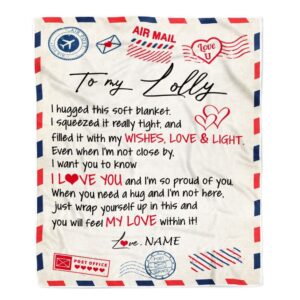 AIR MAIL
Love U
To my Lolly
I hugged this soft blanket.
I squeezed it really tight, and
filled it with my WISHES, LOVE & LIGHT.
Even when I'm not close by,
I want you to know
I L❤VE YOU and I'm so proud of you.
When you need a hug and I'm not here,
just wrap yourself up in this and
you will feel MY LOVE within it!
Love, NAME
POST OFFICE